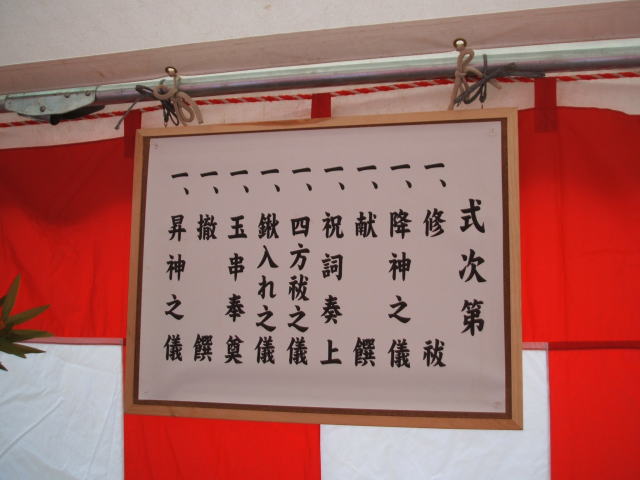 式次第
一、修祓
一、降神之儀
一、献饌
一、祝詞奏上
一、四方祓之儀
一、鍬入れ之儀
一、玉串奉奠
一、撤饌
一、昇神之儀